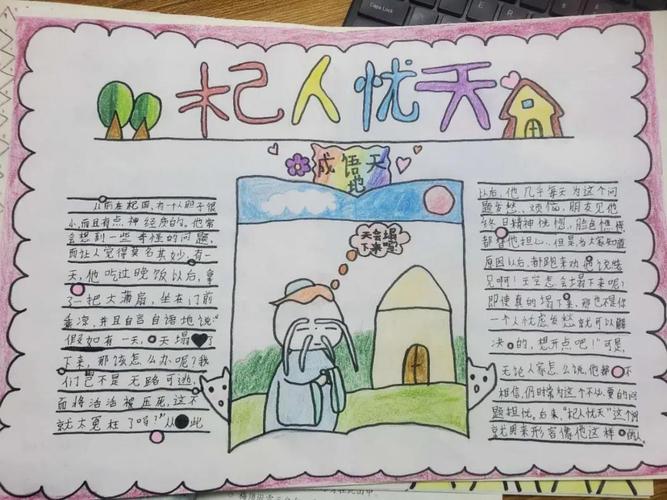 杞人忧天
成语天地
天幸塌下来啦
从前在杞国，有一个胆子很
小，而且有点神经质的。他常
会想到一些奇怪的问题，
而让人觉得莫名其妙，有一
天，他吃过晚饭以后，拿
了一把大蒲扇，坐在门前
乘凉，并且自言自语地说：
"假如有一天，天塌了
下来，那该怎么办呢？我
们岂不是无路可逃，
而将活活被压死，这不
就太冤枉了吗？"从此
以后，他几乎每天为这个问
题发愁、烦恼，朋友见他
终日精神恍惚，脸色憔悴
都替他担心，但是，当大家知道
原因以后，都跑来劝他说：老
兄啊！天空怎会塌下来呢？
即使真的塌下来，那也不是你
一个人忧虑发愁就可以解
决的，想开点吧！"可是，
无论人家怎么说，他都不
相信，仍时常为这个不必要的问
题担忧。后来，"杞人忧天"这个词
就用来形容像他这样的人。
Caps Lock